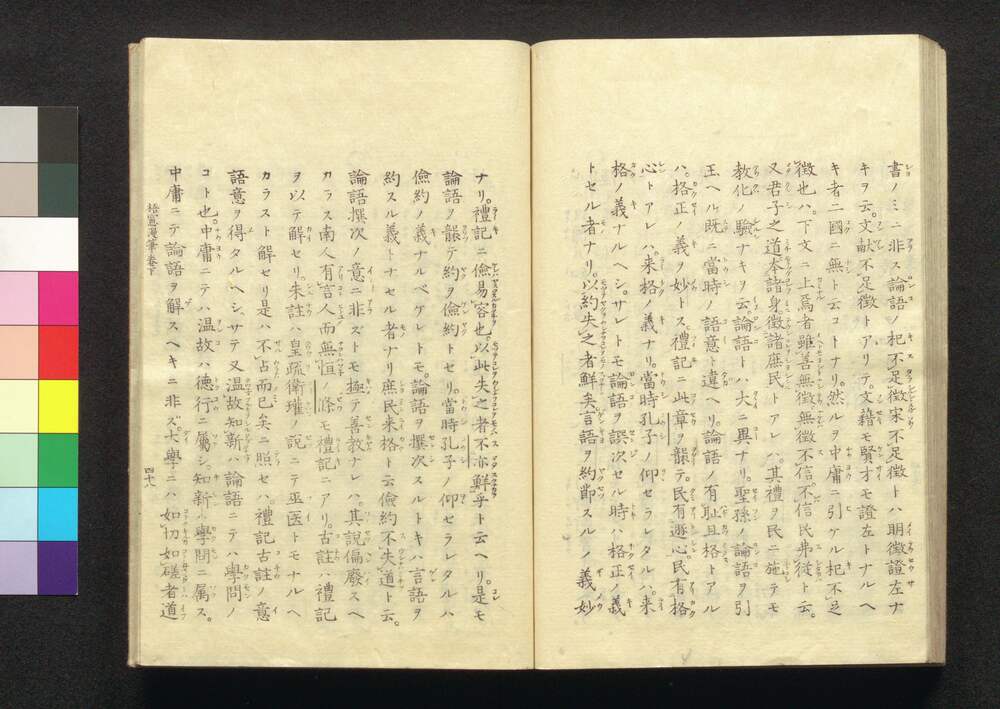 書ノミニ非ス論語ノ杞不足徴宋不足徴トハ明徴證左ナ
キヲ云。文献不足徴トアリテ。文藉モ賢才モ證左トナルヘ
キ者二國ニ無ト云コトナリ。然ルヲ中庸ニ引ケル杞不足
徴也ハ。下文ニ上焉者雖善無徴無徴不信不信民弗從ト云。
又君子之道本諸身徴諸庶民トアレハ。其禮ヲ民ニ施テモ
教化ノ驗ナキヲ云論語トハ大ニ異ナリ。聖孫ノ論語ヲ引
玉ヘル既ニ當時ノ語意ト違ヘリ。論語ノ有耻且格トアル
ハ。格正ノ義ヲ妙トス。禮記ニ此章ヲ韻テ。民有遯心。民有格
心トアレハ来格ノ義ナリ。當時孔子ノ仰セラレタルハ。来
格ノ義ナルヘシ。サレトモ論語ヲ譔次セル時ハ格正ノ義
トセル者ナリ。以約失之者鮮矣言語ヲ約節スルノ義妙
ナリ。禮記ニ儉易容也。以此失之者不亦鮮乎ト云ヘリ。是モ
論語ヲ韻テ約ヲ儉約トセリ。當時孔子ノ仰セラレタルハ
儉約ノ義ナルベケレトモ。論語ヲ撰次スルトキハ言語ヲ
約スル義トナセル者ナリ庶民来格ト云儉約不失道ト云。
論語撰次ノ意ニ非ズトモ極テ善教ナレハ。其說偏廢スヘ
カラス南人有言人而無恒ノ條モ禮記ニアリ。古註ハ禮記
ヲ以テ解セリ。朱註ハ皇疏衛瓘ノ說ニテ巫医トモナルヘ
カラスト解セリ是ハ不占而已矣ニ照セハ。禮記古註ノ意
語意ヲ得タルヘシ。サテ又温故知新ハ論語ニテハ學問ノ
コト也。中庸ニテハ温故ハ徳行ニ屬シ。知新ハ學問ニ属ス。
中庸ニテ論語ヲ解スヘキニ非ズ。大學ニハ如切如磋者道
梧窓漫筆卷下
四十八